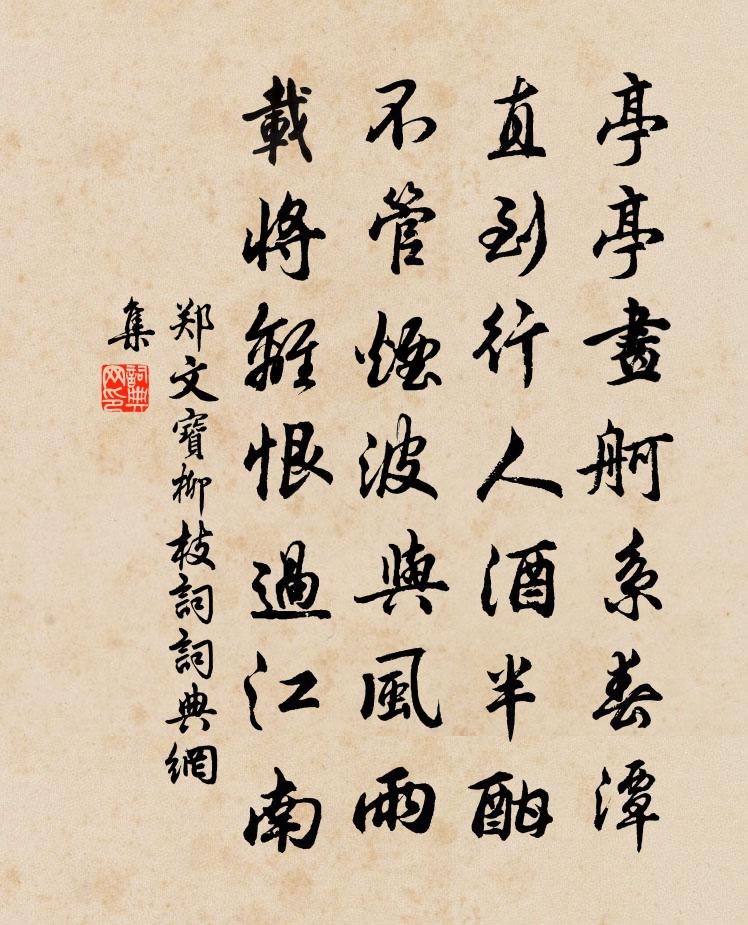 亭亭畫舸系春潭
直到行人酒半酣
不管煙波與風雨
載將離恨過江南
郑文寶柳枝詞詞典網
集
詞典
网印